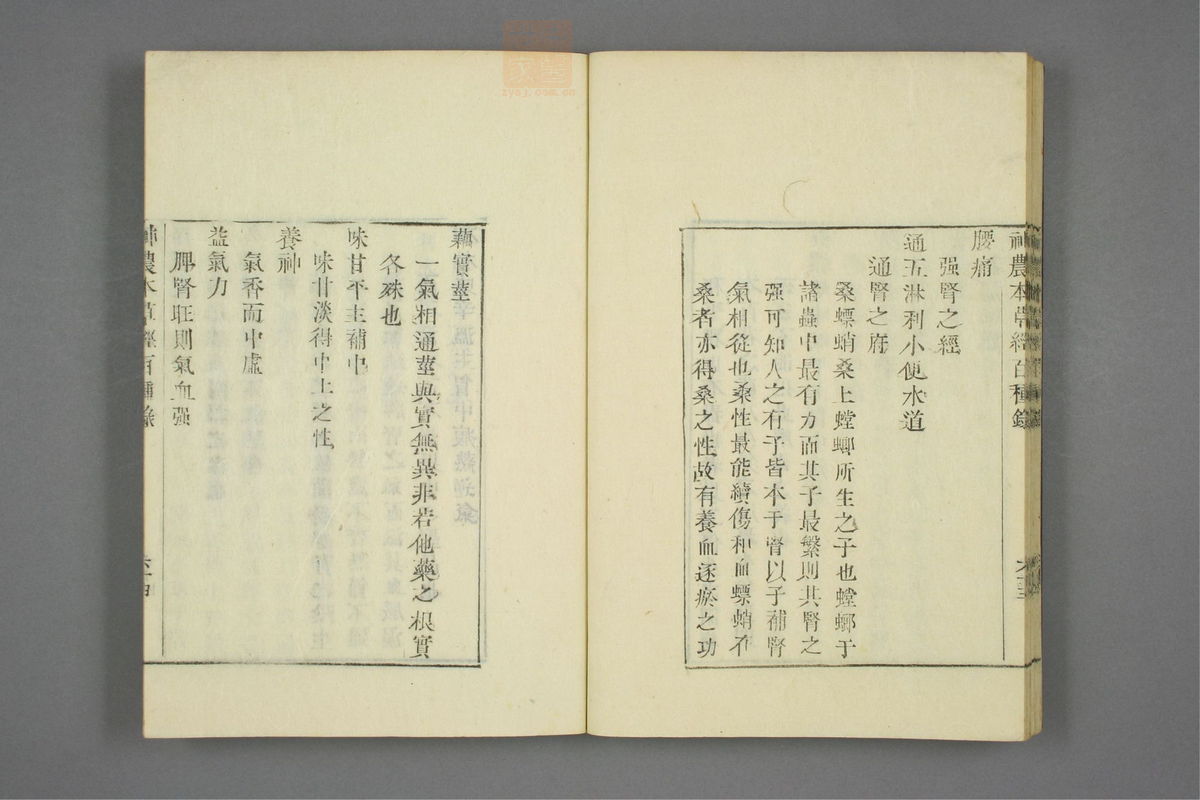 神農本草經百種錄
腰痛
强腎之經
通五淋利小便水道
通腎之府
桑螵蛸桑上螳螂所生之子也螳螂于
諸蟲中最有力而其子最繁則其腎之
强可知人之有子皆本于腎以子補腎
氣相從也桑性最能續傷和血螵蛸在
桑者亦得桑之性故有養血逐瘀之功
藕實莖
一氣相通莖與實無異非若他藥之根實
各殊也
味甘平主補中
味甘淡得中土之性
養神
氣香而中虛
益氣力
脾腎旺則氣血强
神農本草經百種錄
zysj.com.cn